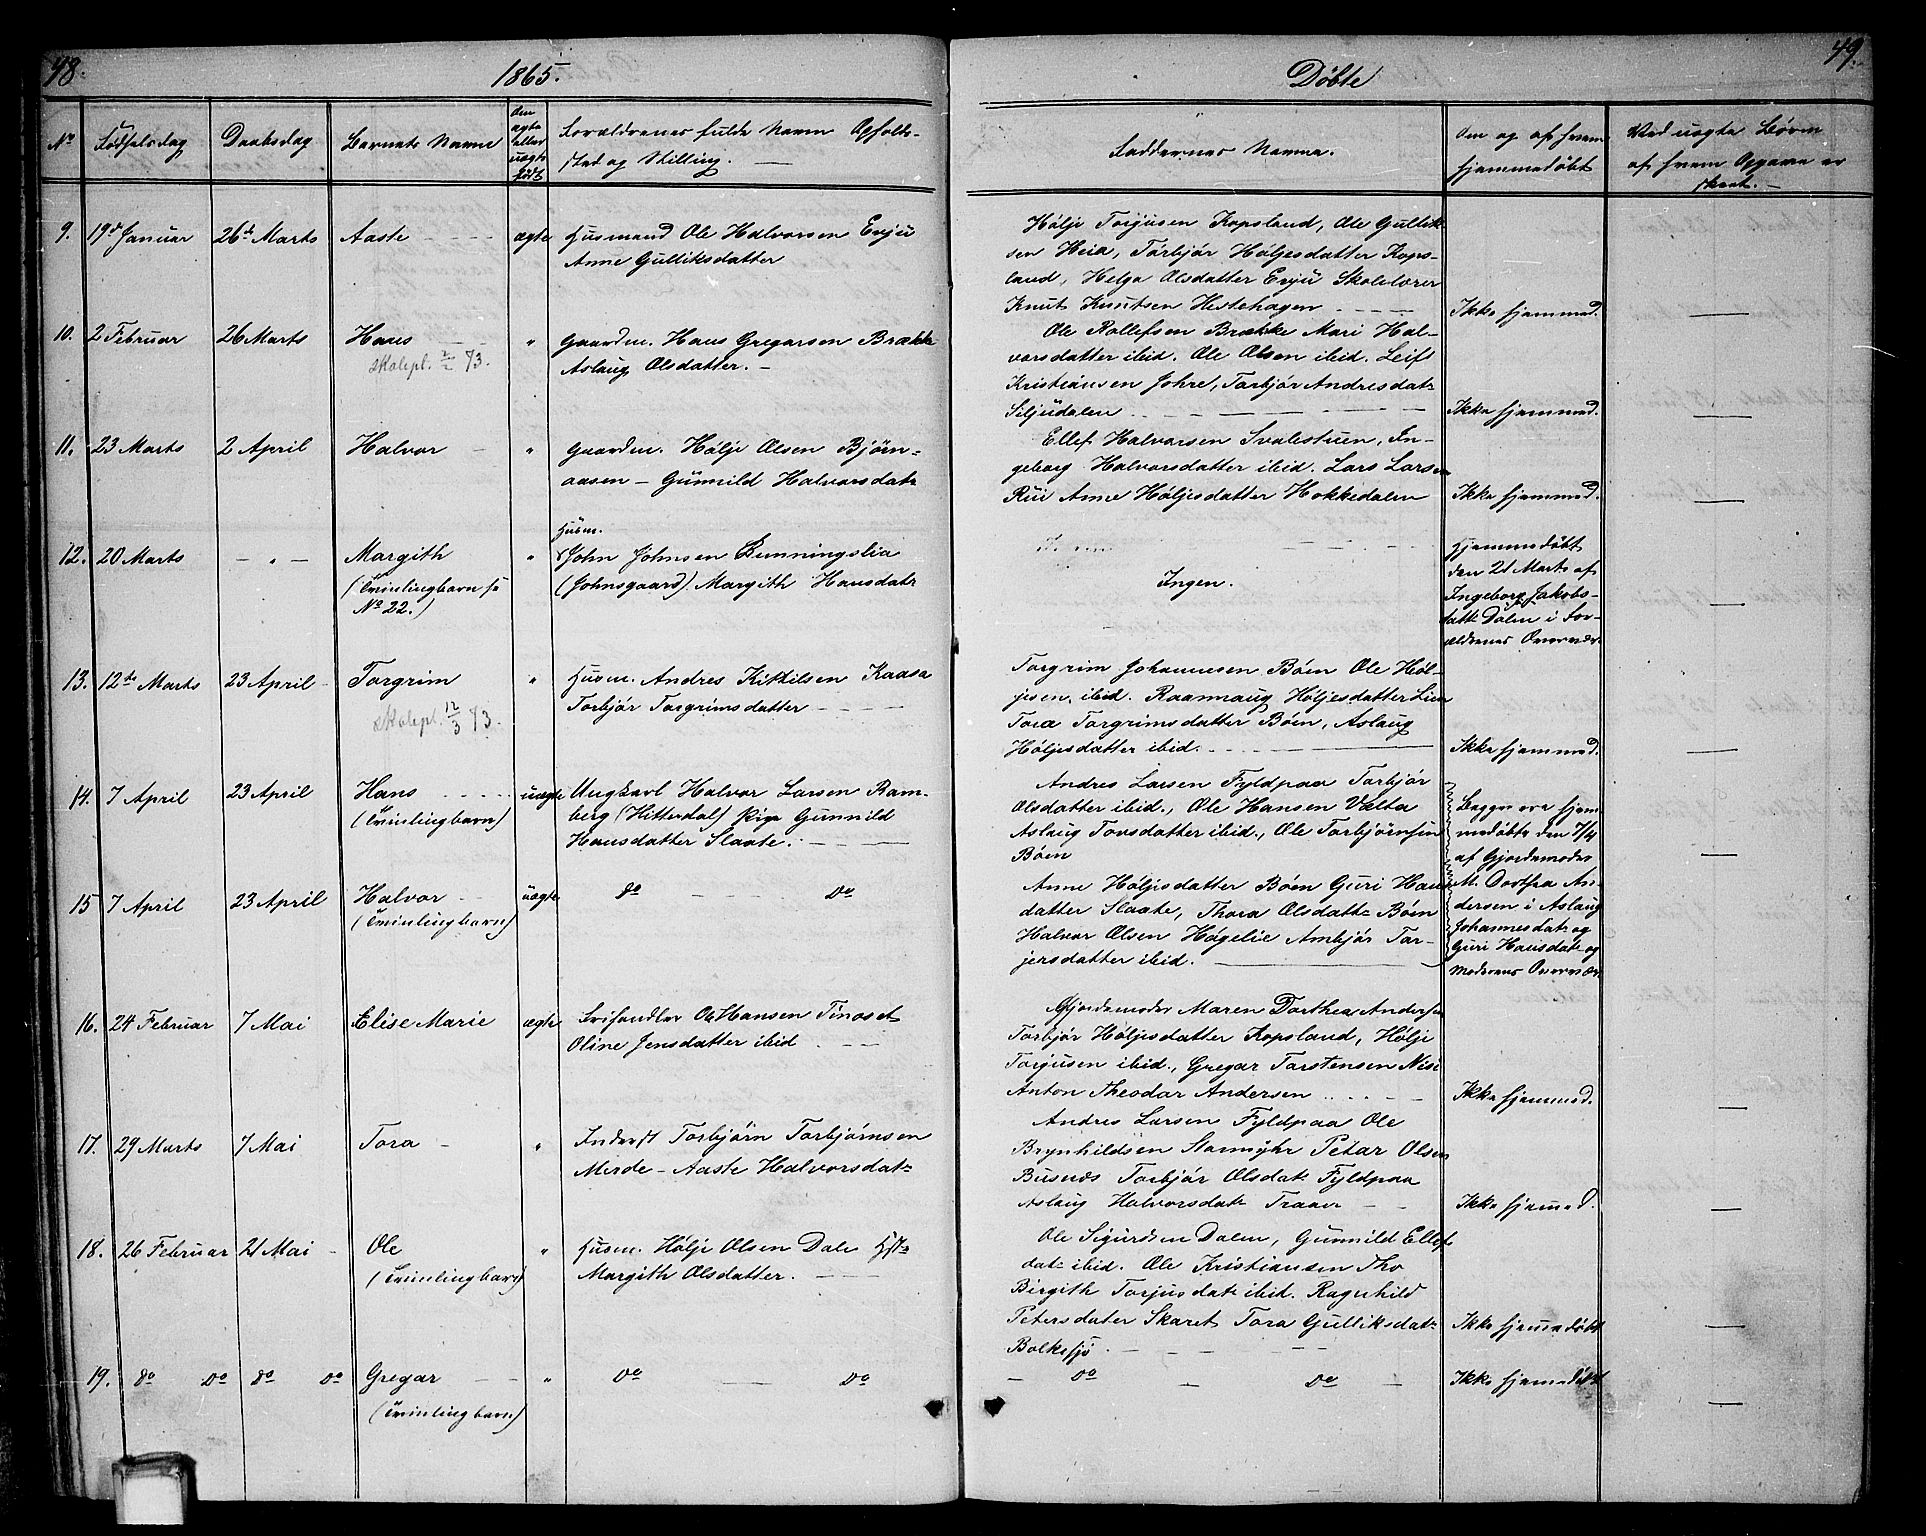 48.
1865.
No
Fødselsdag
Daabsdag
Barnets Navne
Om
ægte
eller
uægte
født
Forældrenes fulde Navne Opholds-
sted og Stilling.
9. 19de Januar 26de Marts Aaste ægte Husmand Ole Halvorsen Evju
Anne Gulliksdatter
10. 2 Februar 26 Marts Hans " Gaardm. Hans Gregarsen Brække
Skolepl. 73. Aslaug Olsdatter.
11. 23 Marts 2 April Halvor " Gaardm. Hølje Olsen Bjørn-
aasen - Gunnild Halvorsdatr
Husm.
12. 20 Marts - " - Margith " John Johnsen Bunningslia
(Tvinlingbarn se (Johnsgaard) Margith Hansdatr
No 22.)
13. 12te Marts 23 April Torgrim " Husm. Andres Kittilsen Kaasa
Skolepl. 12/3 73. Torbjør Torgrimsdatter
14. 7 April 23 April Hans uægte Ungkarl Halvor Larsen Ram-
(Tvinlingbarn) berg (Hitterdal) Pige Gunnild
Hansdatter Slaate.
15 7 April 23 April Halvor uægte do do
(Tvinlingbarn)
16. 24 Februar 7 Mai Elise Marie ægte Ole Hansen Tinoset
Oline Jensdatter ibid
17. 29 Marts 7 Mai Tora " Inderst Torbjørn Torbjørnsen
Merde - Aaste Halvorsdatr
18. 26 Februar 21 Mai Ole " Husm. Hølje Olsen Dale
(Tvinlingbarn) Margith Olsdatter.
19. do do do do Gregar " do do
(Tvinlingbarn)
Døbte
49.
Faddernes Navne.
Om og af hvem
hjemmedøbt
Ved uægte Børn
af hvem Opgaven er
skeet.
Hølje Torjusen Kopsland, Ole Gullik
sen Heia, Torbjør Høljesdatter Kops-
land, Helga Olsdatter Evju Skolelærer
Knut Knutsen Hestehagen Ikke hjemmed.
Ole Rollefsen Brække Mari Hal-
vorsdatter ibid. Ole Olsen ibid. Leif
Kristiansen Johre, Torbjør Andresdatr
Siljudalen Ikke hjemmed.
Ellef Halvorsen Svalestuen, In-
geborg Halvorsdatter ibid. Lars Larsen
Rui Anne Høljesdatter Hokkedalen Ikke hjemmed.
Ingen.
Hjemmedøbt
den 21 Marts af
Ingeborg Jakobs-
datr Dalen i For-
ældrenes Overvær.
Torgrim Johannesen Bøen Ole Høl-
jesen ibid. Raannaug Høljesdatter Lien
Tora Torgrimsdatter Bøen, Aslaug
Høljesdatter ibid. Ikke hjemmed.
Andres Larsen Fyldpaa Torbjør
Olsdatter ibid., Ole Hansen Vælta
Aslaug Tonsdatter ibid., Ole Torbjørnsen
Bøen
Anne Høljesdatter Bøen Guri Hans
datter Slaate, Thora Olsdatr Bøen
Halvor Olsen Høgelie Ambjør Tor-
jersdatter ibid.
Begge ere hjem
medøbte den 7/4
af Gjordemoder
M. Dorthea An-
dersen i Aslaug
Johannesdatr og
Guri Hansdatr og
Moderens Overvær.
Gjordemoder Maren Dorthea Andersen
Torbjør Høljesdatter Kopsland, Hølje
Torjusen ibid., Gregar Torstensen Nisi
Anton Theodor Andersen Ikke hjemmed.
Andres Larsen Fyldpaa Ole
Brynhildsen Stamyhr Petar Olsen
Busnes Torbjør Olsdatr Fyldpaa
Aslaug Halvorsdatr Traaer Ikke hjemmed.
Ole Sigurdsen Dalen, Gunnild Ellefs
datr ibid. Ole Kristiansen Tho
Birgith Torjusdatr ibid. Ragnhild
Petersdater Skaret Tora Gulliksdatr Ikke hjemmedøbt
Bolkesjø
do do Ikke hjemmedøbt